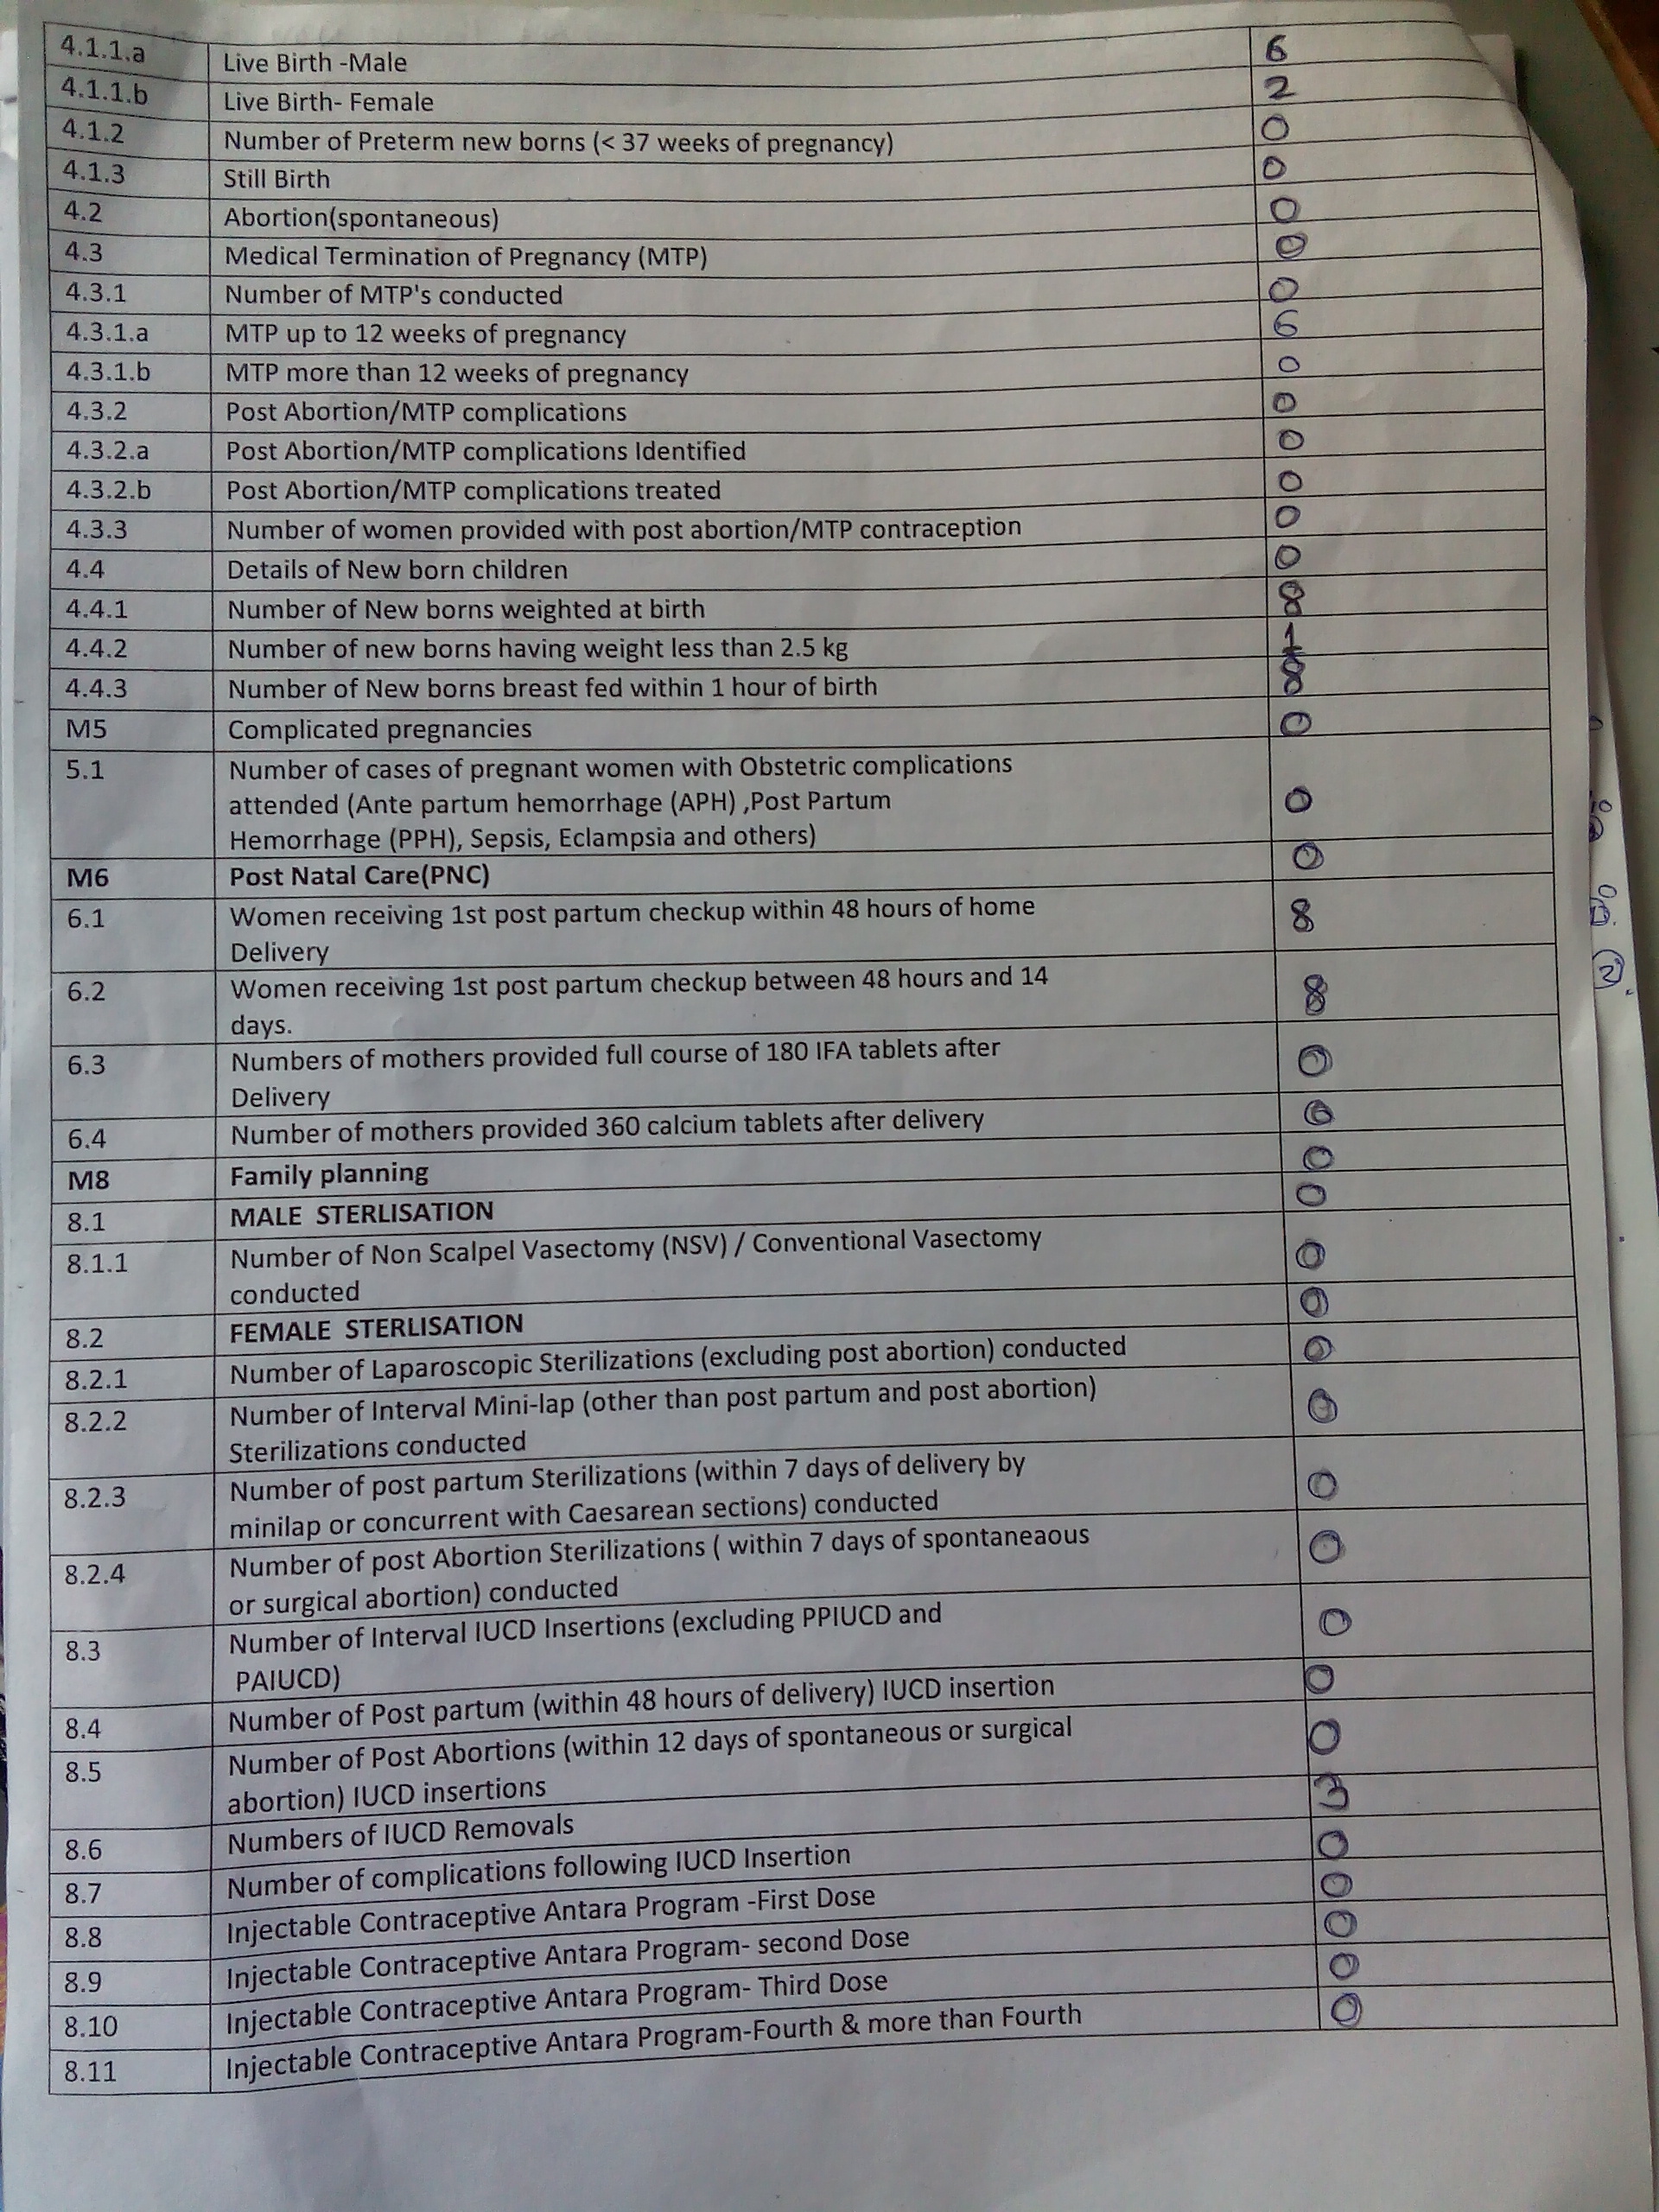 4.1.1.a Live Birth -Male 6
4.1.1.b Live Birth- Female 2
4.1.2 Number of Preterm new borns (< 37 weeks of pregnancy) 0
4.1.3 Still Birth 0
4.2 Abortion(spontaneous) 0
4.3 Medical Termination of Pregnancy (MTP) 0
4.3.1 Number of MTP's conducted 0
4.3.1.a MTP up to 12 weeks of pregnancy 6
4.3.1.b MTP more than 12 weeks of pregnancy 0
4.3.2 Post Abortion/MTP complications 0
4.3.2.a Post Abortion/MTP complications Identified 0
4.3.2.b Post Abortion/MTP complications treated 0
4.3.3 Number of women provided with post abortion/MTP contraception 0
4.4 Details of New born children 0
4.4.1 Number of New borns weighted at birth 8
4.4.2 Number of new borns having weight less than 2.5 kg 1
4.4.3 Number of New borns breast fed within 1 hour of birth 8
M5 Complicated pregnancies 0
5.1 Number of cases of pregnant women with Obstetric complications
attended (Ante partum hemorrhage (APH) ,Post Partum 0
Hemorrhage (PPH), Sepsis, Eclampsia and others)
M6 Post Natal Care(PNC) 0
6.1 Women receiving 1st post partum checkup within 48 hours of home 8
Delivery
6.2 Women receiving 1st post partum checkup between 48 hours and 14 8
days.
6.3 Numbers of mothers provided full course of 180 IFA tablets after 0
Delivery
6.4 Number of mothers provided 360 calcium tablets after delivery 0
M8 Family planning 0
8.1 MALE STERLISATION 0
8.1.1 Number of Non Scalpel Vasectomy (NSV) / Conventional Vasectomy 0
conducted
8.2 FEMALE STERLISATION 0
8.2.1 Number of Laparoscopic Sterilizations (excluding post abortion) conducted 0
8.2.2 Number of Interval Mini-lap (other than post partum and post abortion) 0
Sterilizations conducted
8.2.3 Number of post partum Sterilizations (within 7 days of delivery by 0
minilap or concurrent with Caesarean sections) conducted
8.2.4 Number of post Abortion Sterilizations ( within 7 days of spontaneaous 0
or surgical abortion) conducted
8.3 Number of Interval IUCD Insertions (excluding PPIUCD and 0
PAIUCD)
8.4 Number of Post partum (within 48 hours of delivery) IUCD insertion 0
8.5 Number of Post Abortions (within 12 days of spontaneous or surgical 0
abortion) IUCD insertions
8.6 Numbers of IUCD Removals 3
8.7 Number of complications following IUCD Insertion 0
8.8 Injectable Contraceptive Antara Program -First Dose 0
8.9 Injectable Contraceptive Antara Program- second Dose 0
8.10 Injectable Contraceptive Antara Program- Third Dose 0
8.11 Injectable Contraceptive Antara Program-Fourth & more than Fourth 0